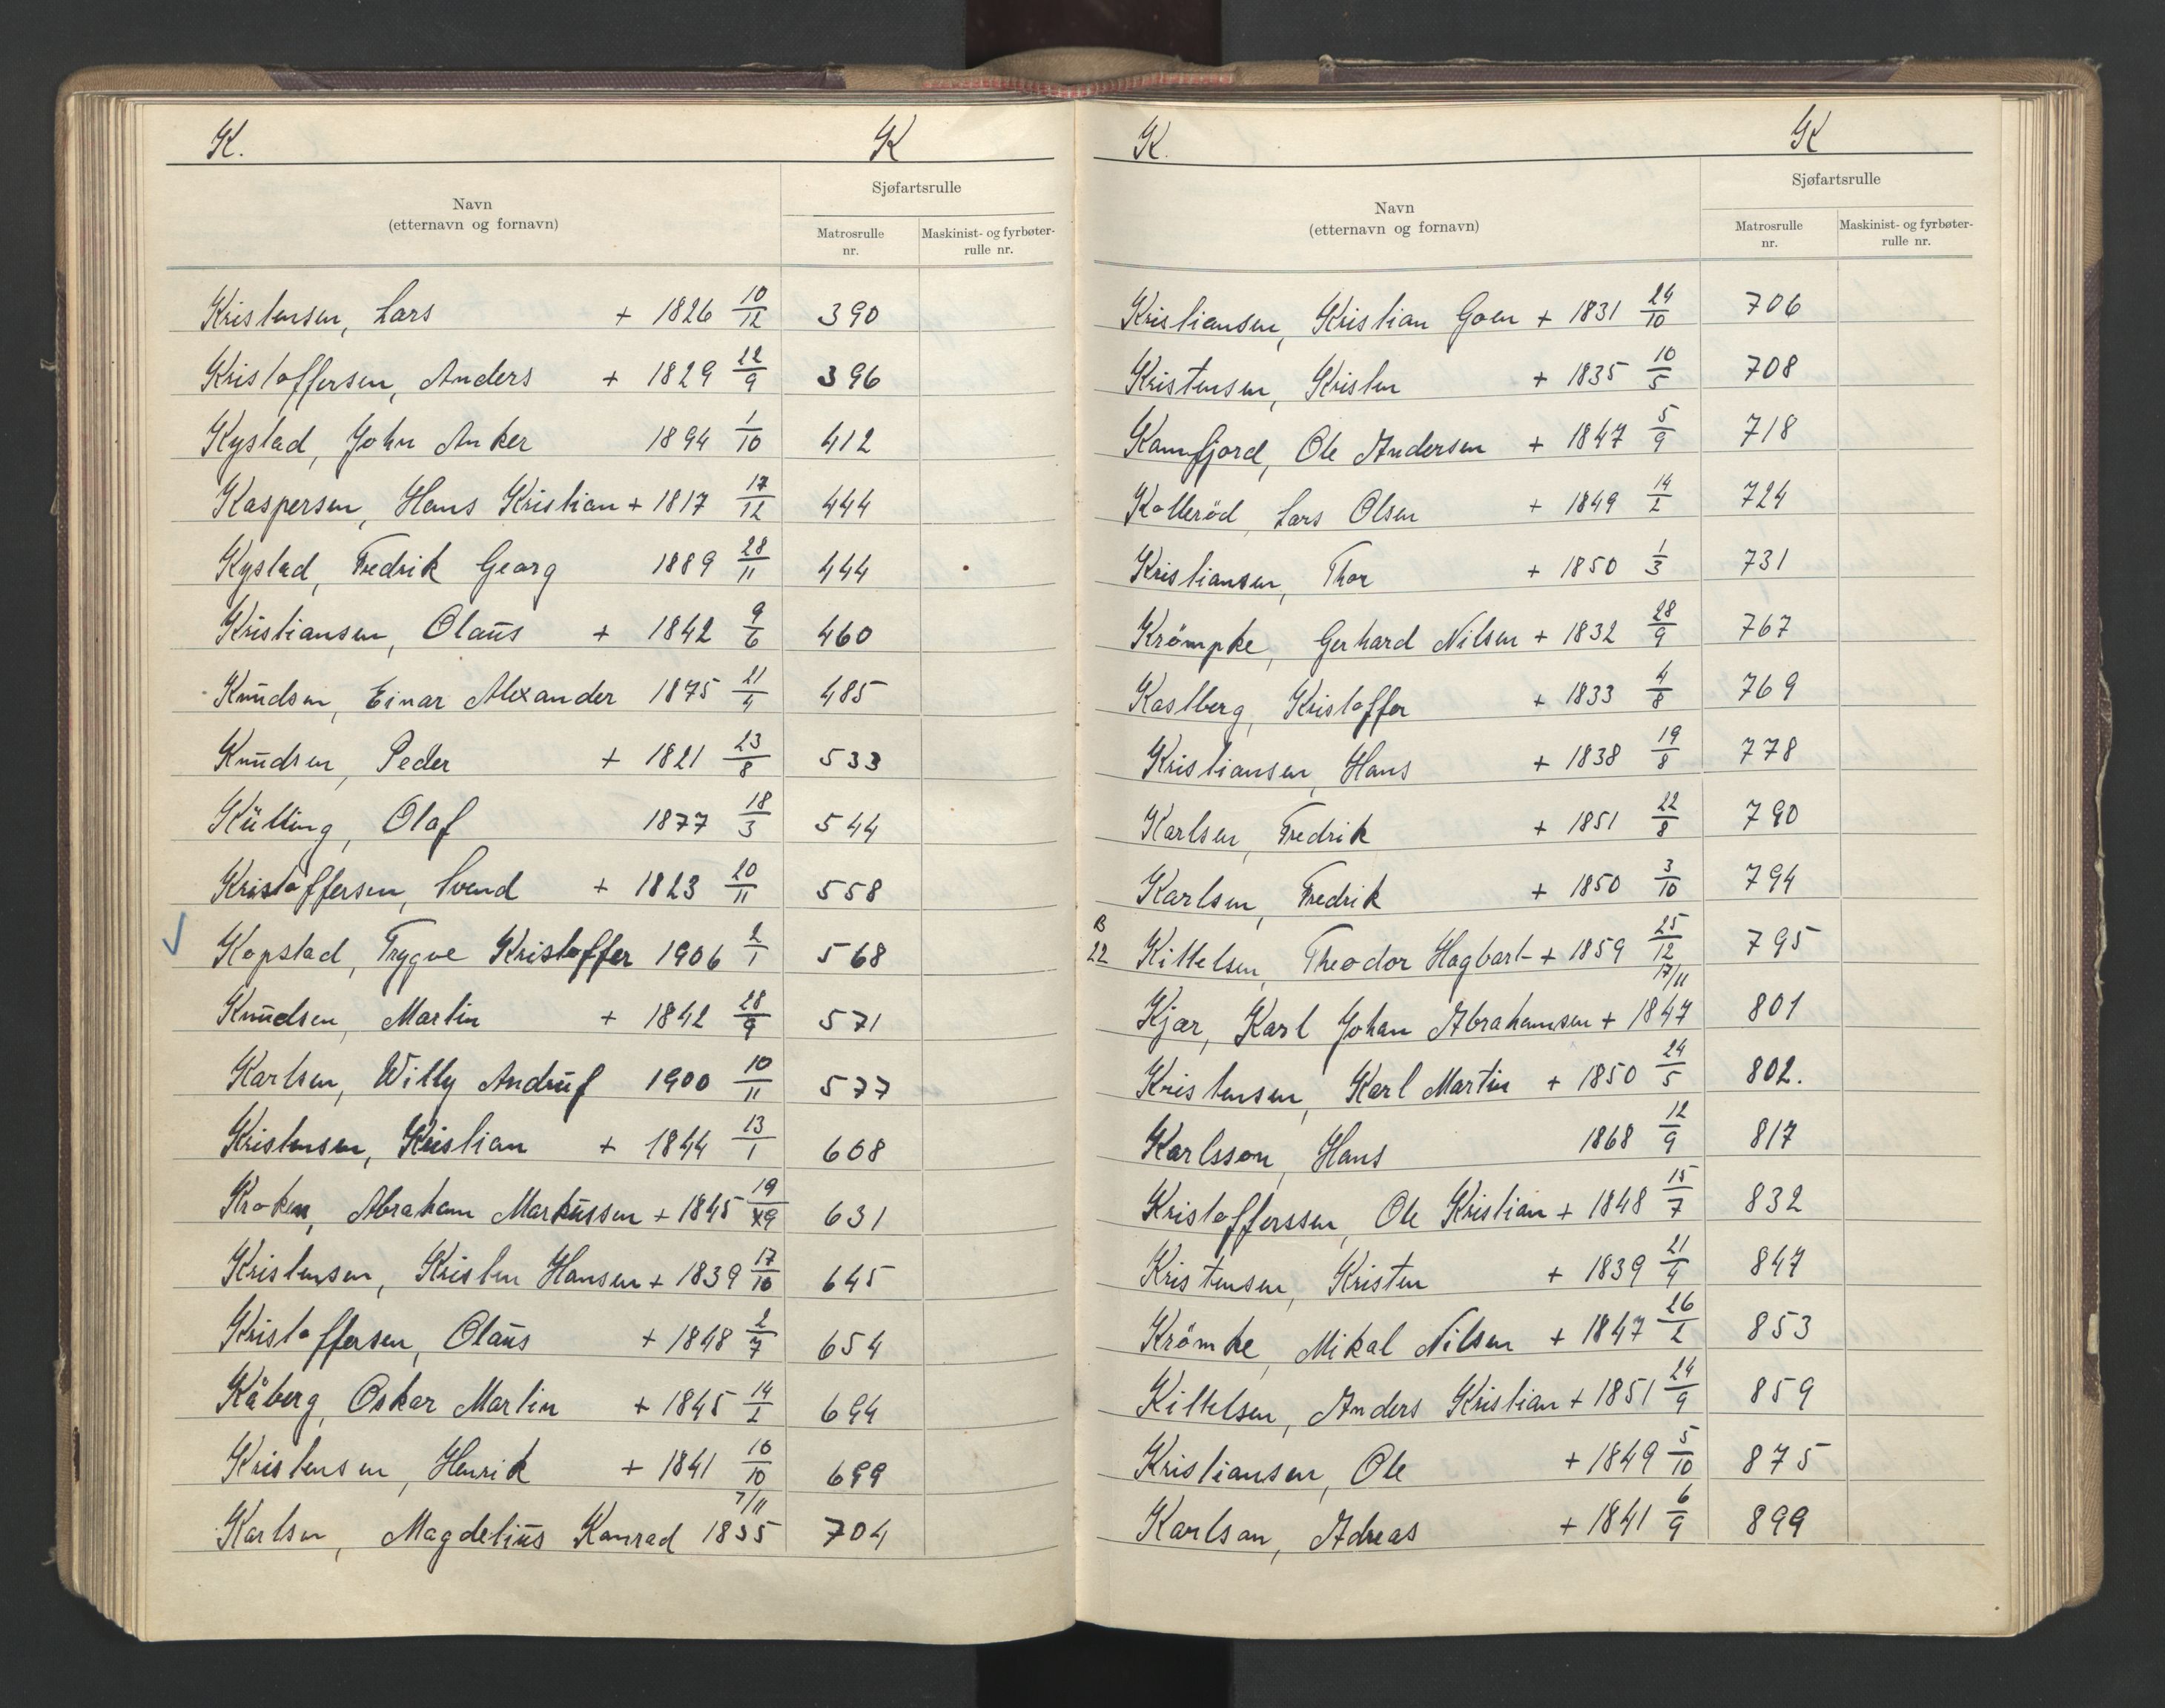 K. K
Navn
(etternavn og fornavn)
Sjøfartsrulle
Matrosrulle
nr.
Maskinist- og fyrbøter-
rulle nr.
Kristensen, Lars + 1826 10/12 390
Kristoffersen, Anders + 1829 22/9 396
Kystad, John Anker 1894 1/10 412
Kaspersen, Hans Kristian + 1817 17/12 444
Kystad, Fredrik Georg 1889 28/11 444
Kristiansen, Olaus + 1842 9/6 460
Knudsen, Einar Alexander 1875 21/4 485
Knudsen, Peder + 1821 23/8 533
Külling, Olaf 1877 18/3 544
Kristoffersen, Svend + 1823 20/11 558
Kopstad, Trygve Kristoffer 1906 2/1 568
Knudsen, Martin + 1842 28/9 571
Karlsen, Willy Andruf 1900 10/11 577
Kristensen, Kristian + 1844 13/1 608
Kroken, Abraham Markussen + 1845 19/9 631
Kristensen, Kristen Hansen + 1839 17/10 645
Kristoffersen, Olaus + 1848 2/7 654
Kåberg, Oskar Martin + 1845 14/2 694
Kristensen, Henrik + 1841 16/10 699
Karlsen, Magdelius Konrad 1835 7/11 704
K. K
Navn
(etternavn og fornavn)
Sjøfartsrulle
Matrosrulle
nr.
Maskinist- og fyrbøter-
rulle nr.
Kristiansen, Kristian Goen + 1831 24/10 706
Kristensen, Kristen + 1835 10/5 708
Kamfjord, Ole Andersen + 1847 5/9 718
Kollerød, Lars Olsen + 1849 14/2 724
Kristiansen, Thor + 1850 1/3 731
Krömpke, Gerhard Nilsen + 1832 28/9 767
Kastberg, Kristoffer + 1833 4/8 769
Kristiansen, Hans + 1838 19/8 778
Karlsen, Fredrik + 1851 22/8 790
Karlsen, Fredrik + 1850 3/10 794
B
22 Kittelsen, Theodor Hagbart + 1859 25/12 795
Kjær, Karl Johan Abrahamsen + 1847 17/11 801
Kristensen, Karl Martin + 1850 24/5 802.
Karlsson, Hans 1868 12/9 817
Kristofferssen, Ole Kristian + 1848 15/7 832
Kristensen, Kristen + 1839 21/4 847
Krömke, Mikal Nilsen + 1847 26/2 853
Kittelsen, Anders Kristian + 1851 24/9 859
Kristiansen, Ole + 1849 5/10 875
Karlsen, Adreas + 1841 6/9 899